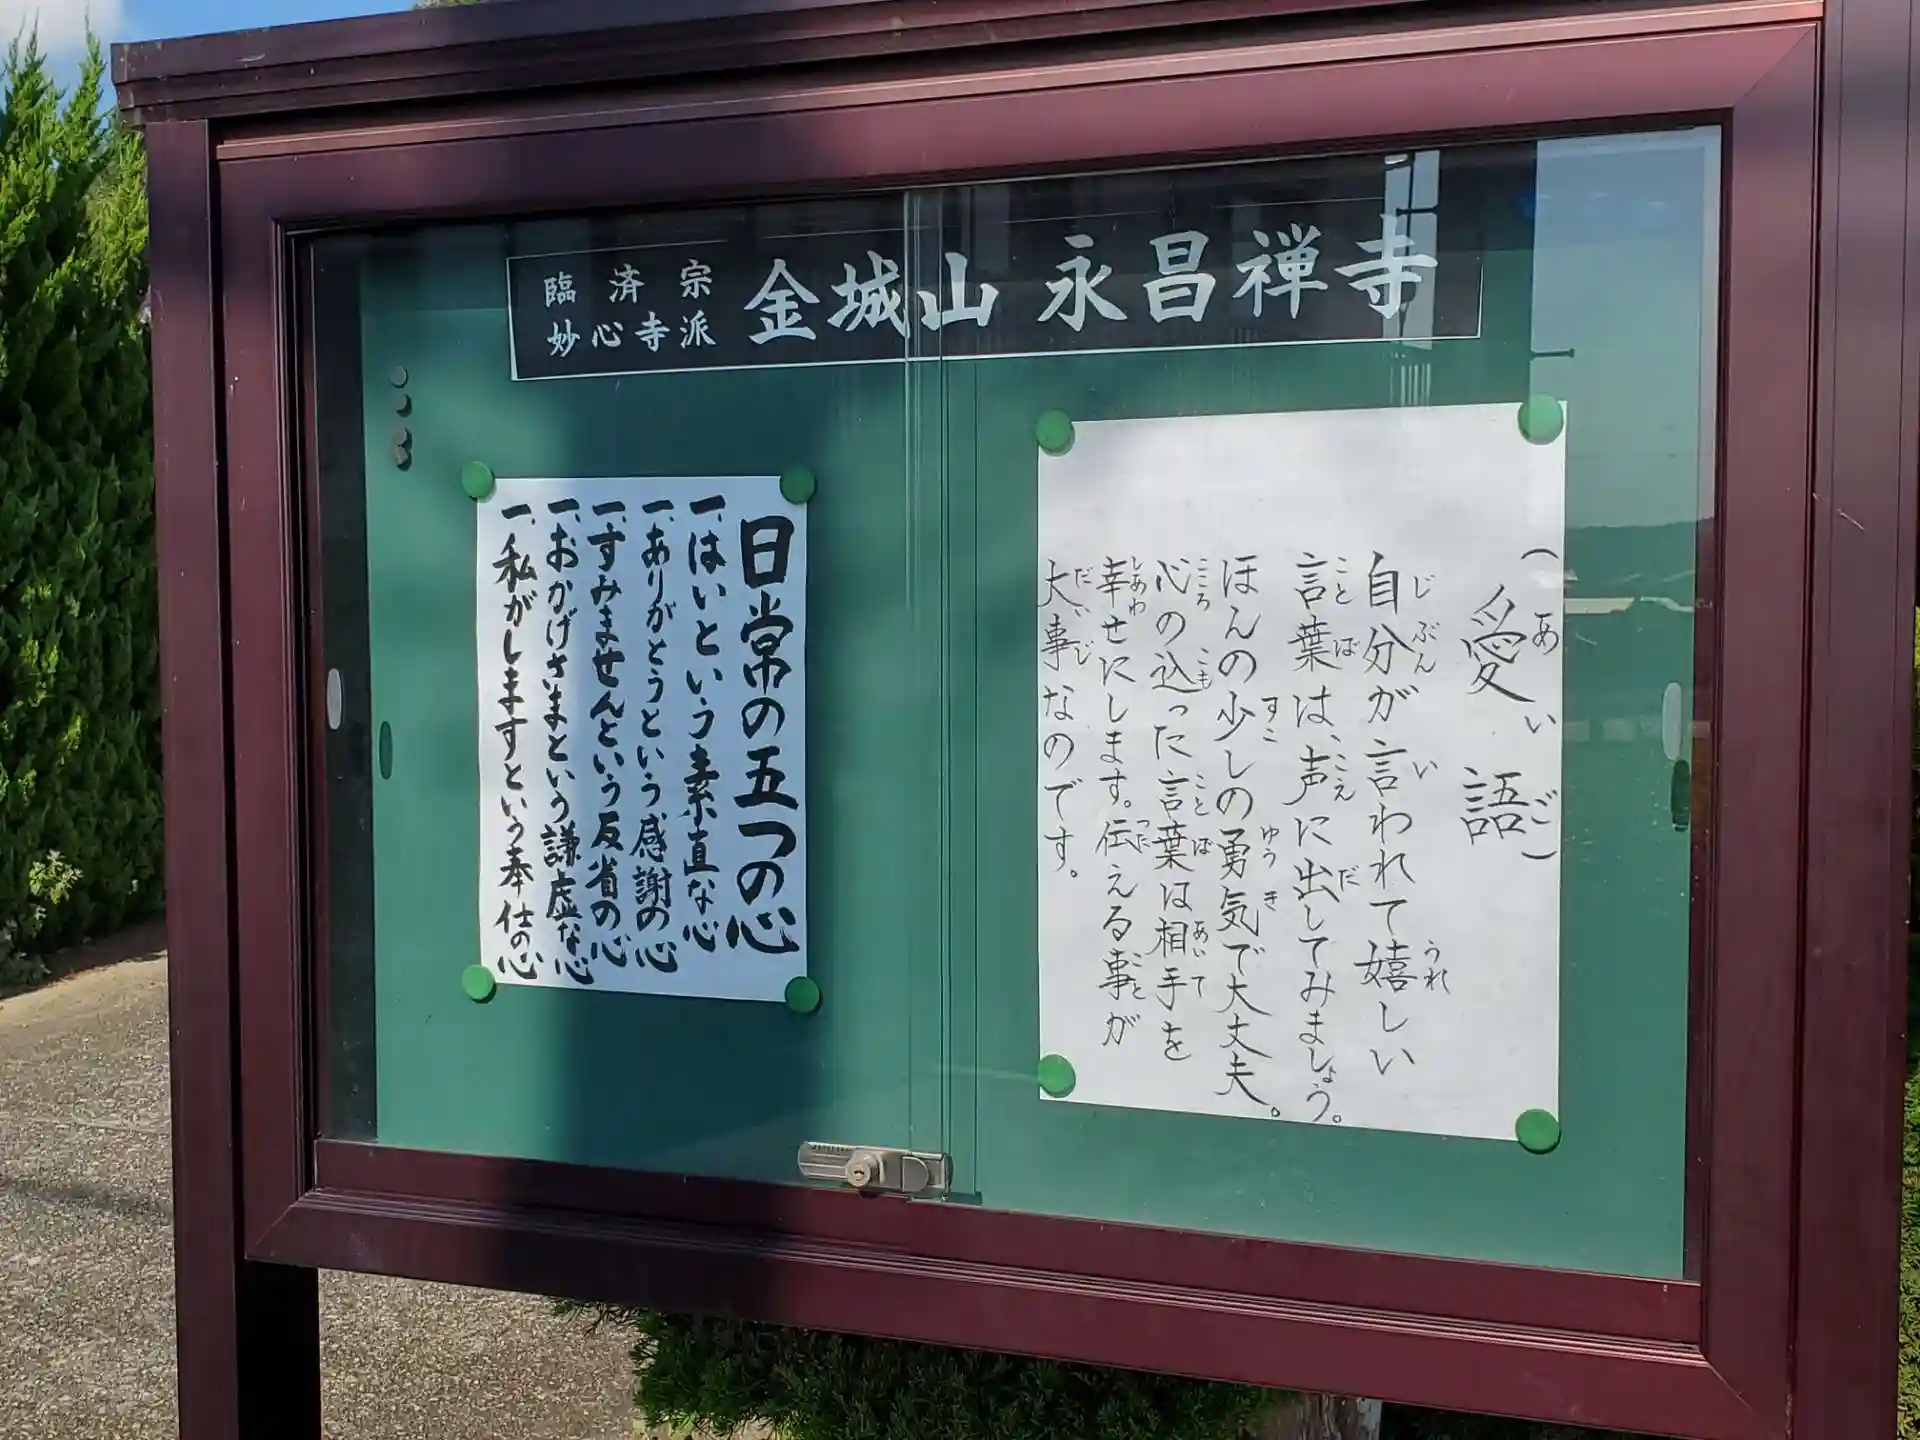 臨済宗
妙心寺派
金城山 永昌禅寺
愛語
(あいご)
自分が言われて嬉しい
じぶん い うれ
言葉は、声に出してみましょう。
ことば こえ だ
ほんの少しの勇気で大丈夫。
すこ ゆうき
心の込った言葉は相手を
こころ こも ことば あいて
幸せにします。伝える事が
しあわ つた こと
大事なのです。
だいじ
日常の五つの心
一、はいという素直な心
一、ありがとうという感謝の心
一、すみませんという反省の心
一、おかげさまという謙虚な心
一、私がしますという奉仕の心